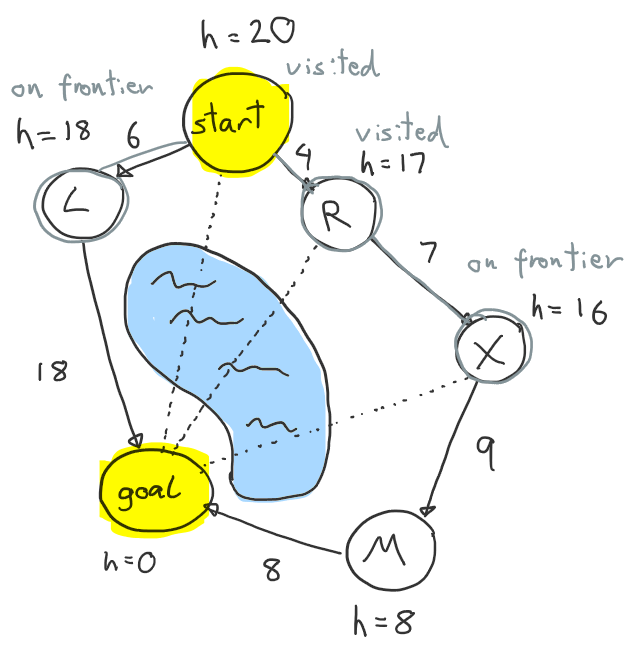 h=20
visited
start
on frontier
h=18
6
4
visited
h=17
L
R
7
on frontier
h=16
X
18
9
goal
h=0
8
M
h=8